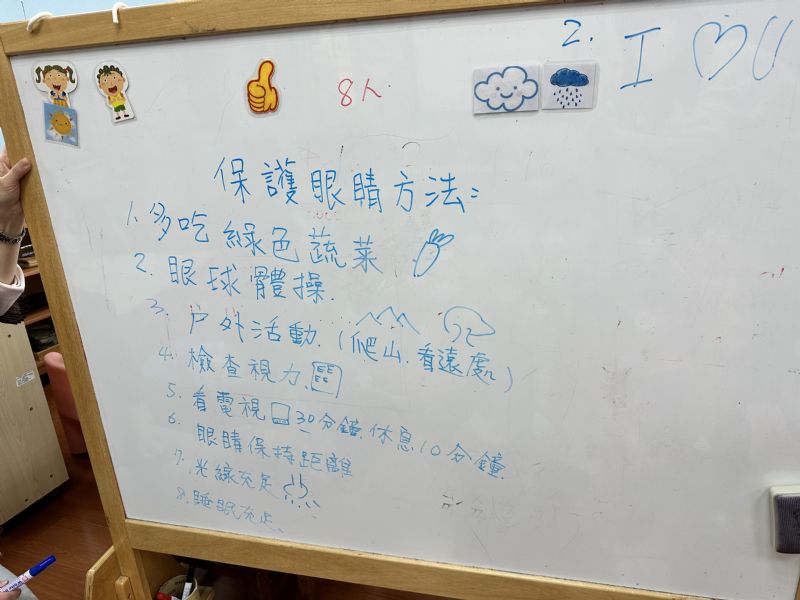 2. I ♡ U
8人
保護眼睛方法:
1. 多吃綠色蔬菜
2. 眼球體操.
3. 戶外活動.(爬山.看遠處)
4. 檢查視力.
5. 看電視 30分鐘.休息10分鐘.
6. 眼睛保持距離
7. 光線充足
8. 睡眠充足、